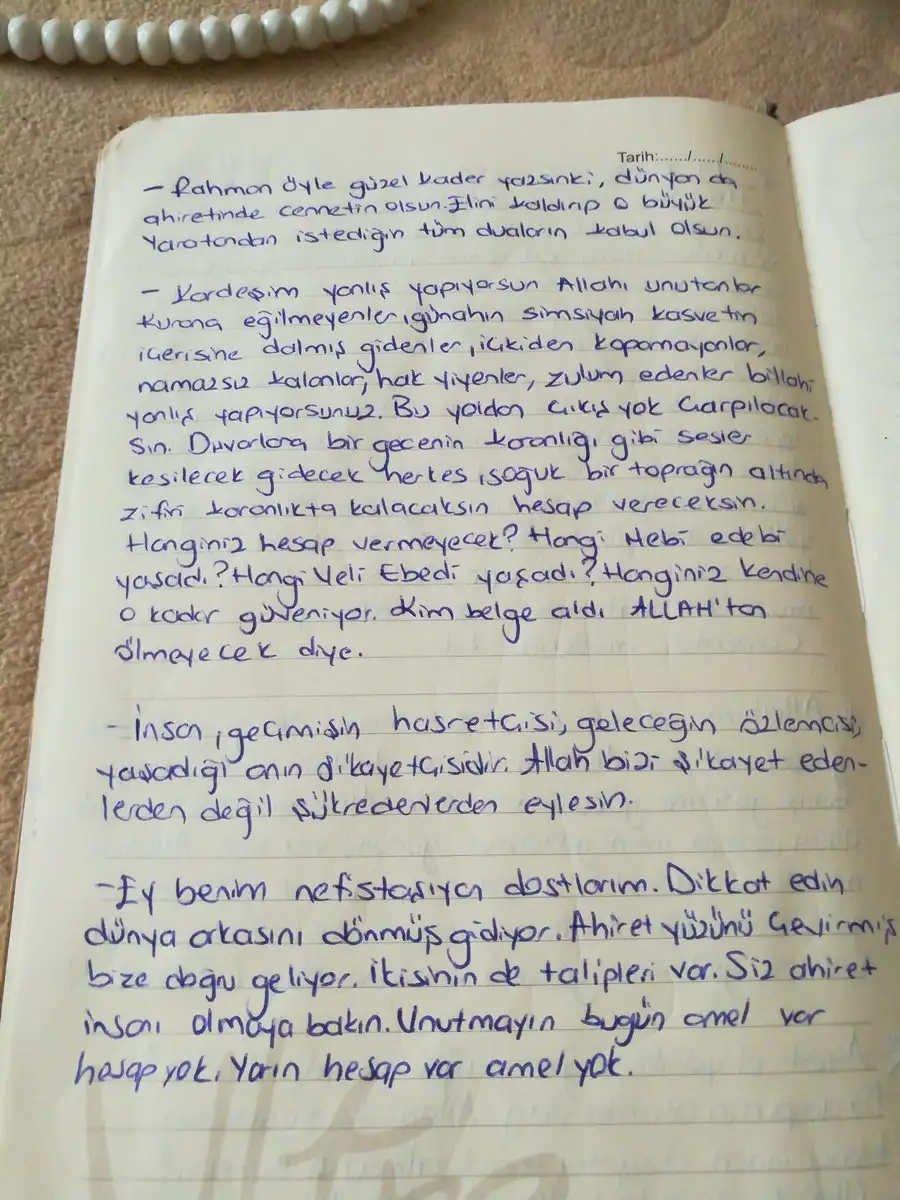 Tarih:....../....../........
- Rahman öyle güzel kader yazsınki, dünyan da
ahiretinde cennetin olsun. Elini kaldırıp o büyük
Yaratandan istediğin tüm duaların kabul olsun.
- Kardeşim yanlış yapıyorsun Allahı unutanlar
Kurana eğilmeyenler, günahın simsiyah kasvetin
içerisine dalmış gidenler, içkiden kopamayanlar,
namazsız kalanlar, hak yiyenler, zulum edenler billahi
yanlış yapıyorsunuz. Bu yoldan çıkış yok Çarpılacak-
sın. Duvarlara bir gecenin karanlığı gibi sesler
kesilecek gidecek herkes, soğuk bir toprağın altında
zifiri karanlıkta kalacaksın hesap vereceksin.
Hanginiz hesap vermeyecek? Hangi Nebi edebi
yaşadı? Hangi Veli Ebedi yaşadı? Hanginiz kendine
o kadar güveniyor. Kim belge aldı ALLAH'tan
ölmeyecek diye.
- İnsan, geçmişin hasretçisi, geleceğin özlemcisi,
yaşadığı anın şikayetçisidir. Allah bizi şikayet eden-
lerden değil şükredenlerden eylesin.
- Ey benim nefistaşıyan dostlarım. Dikkat edin
dünya arkasını dönmüş gidiyor. Ahiret yüzünü Çevirmiş
bize doğru geliyor. İkisinin de talipleri var. Siz ahiret
insanı olmaya bakın. Unutmayın bugün amel var
hesap yok. Yarın hesap var amel yok.